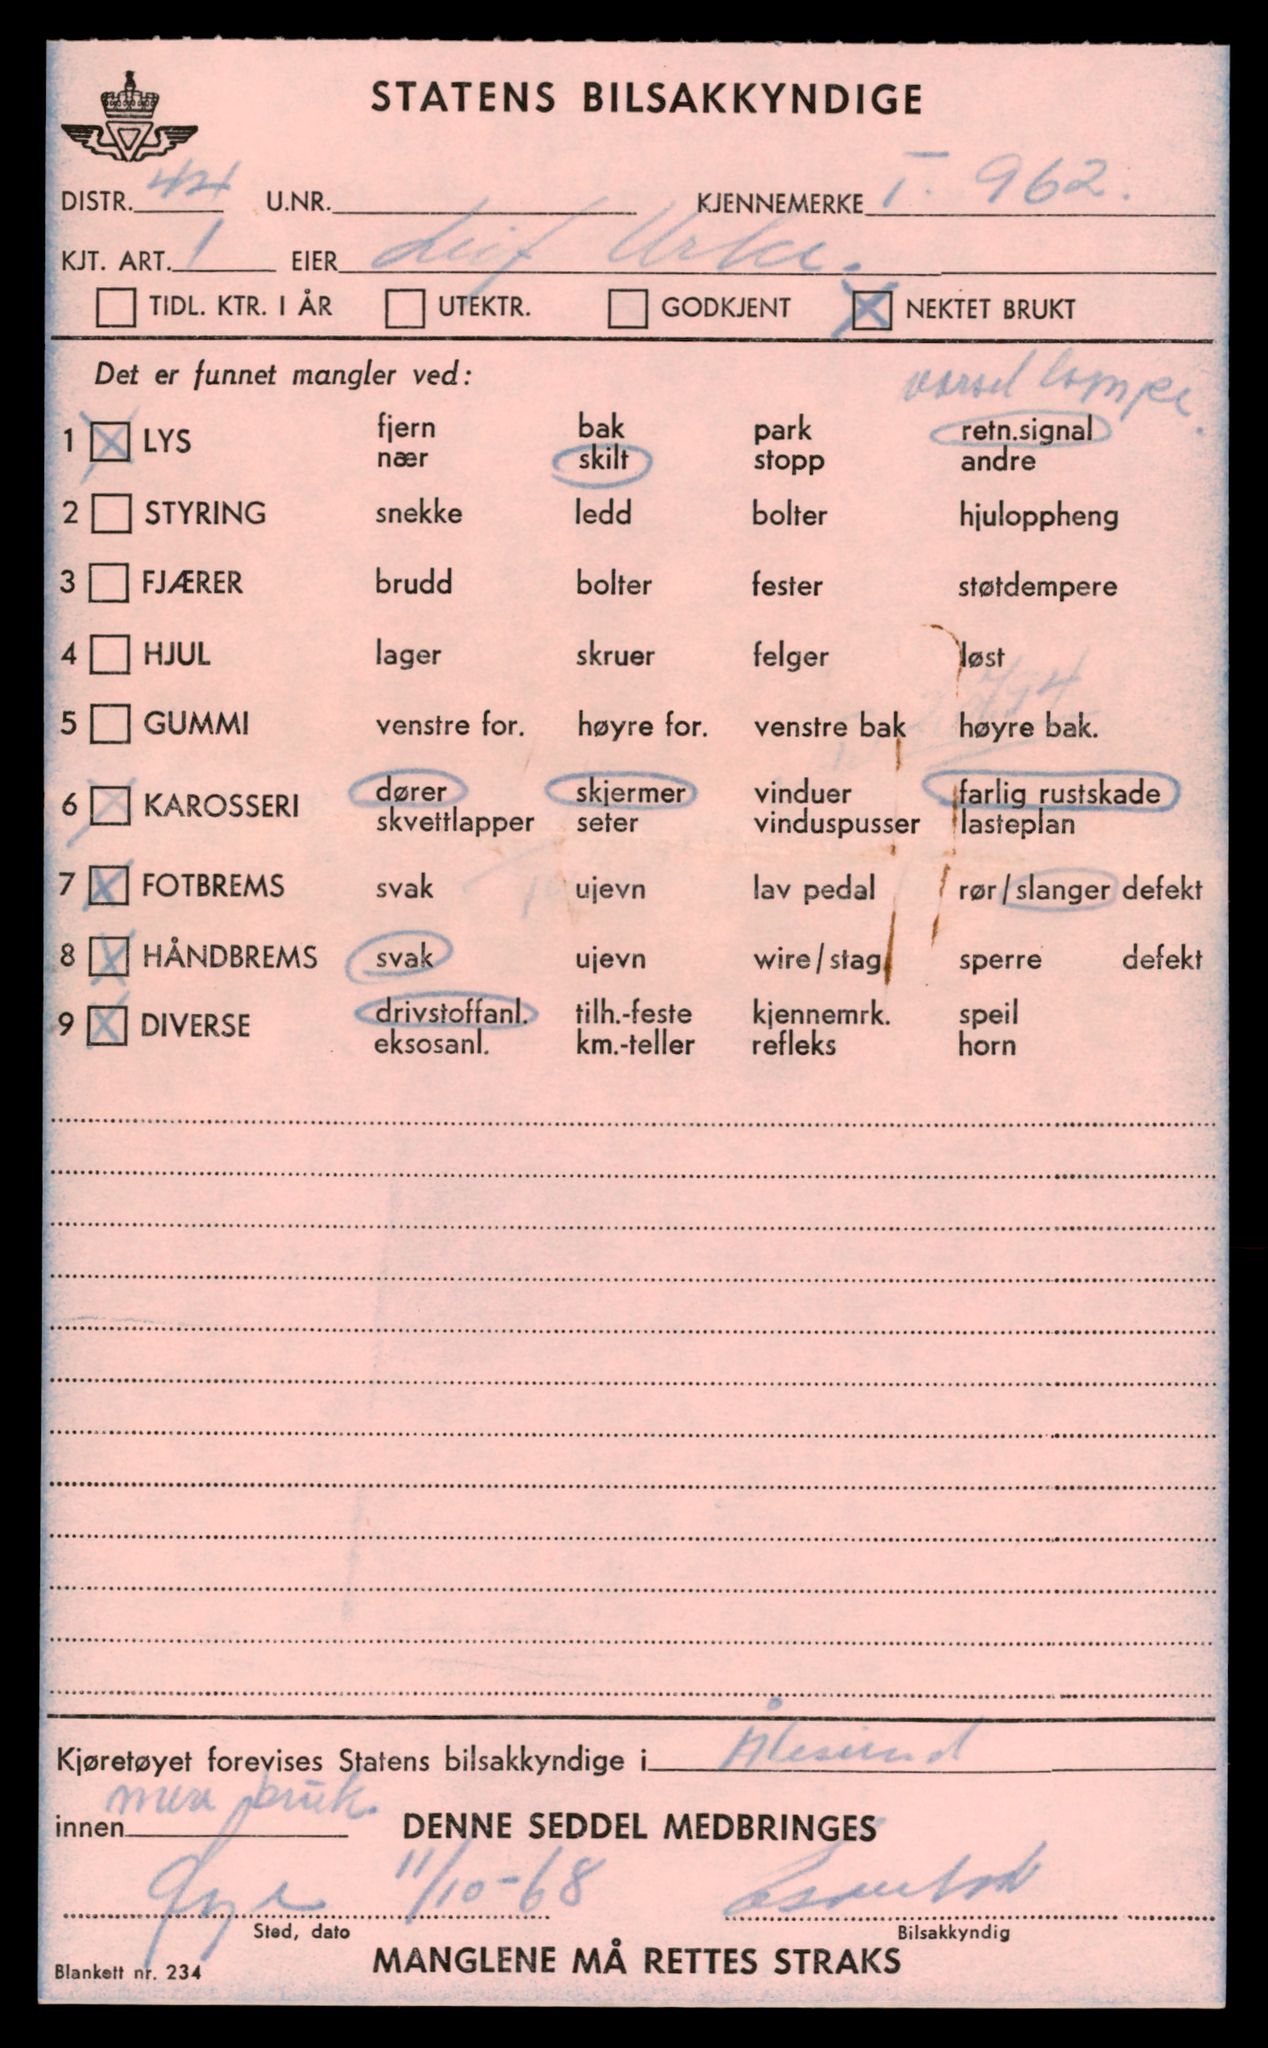 STATENS BILSAKKYNDIGE
DISTR. 44 U.NR. KJENNEMERKE T. 962.
KJT. ART. 1 EIER Leif Urke.
TIDL. KTR. I ÅR UTEKTR. GODKJENT NEKTET BRUKT
Det er funnet mangler ved: varsel lampe.
1 LYS fjern bak park retn.signal
nær skilt stopp andre
2 STYRING snekke ledd bolter hjuloppheng
3 FJÆRER brudd bolter fester støtdempere
4 HJUL lager skruer felger løst
5 GUMMI venstre for. høyre for. venstre bak høyre bak.
6 KAROSSERI dører skjermer vinduer farlig rustskade
skvettlapper seter vinduspusser lasteplan
7 FOTBREMS svak ujevn lav pedal rør/slanger defekt
8 HÅNDBREMS svak ujevn wire/stag sperre defekt
9 DIVERSE drivstoffanl. tilh.-feste kjennemrk. speil
eksosanl. km.-teller refleks horn
Kjøretøyet forevises Statens bilsakkyndige i Ålesund
innen bruk. DENNE SEDDEL MEDBRINGES
11/10-68
Sted, dato Bilsakkyndig
Blankett nr. 234 MANGLENE MÅ RETTES STRAKS